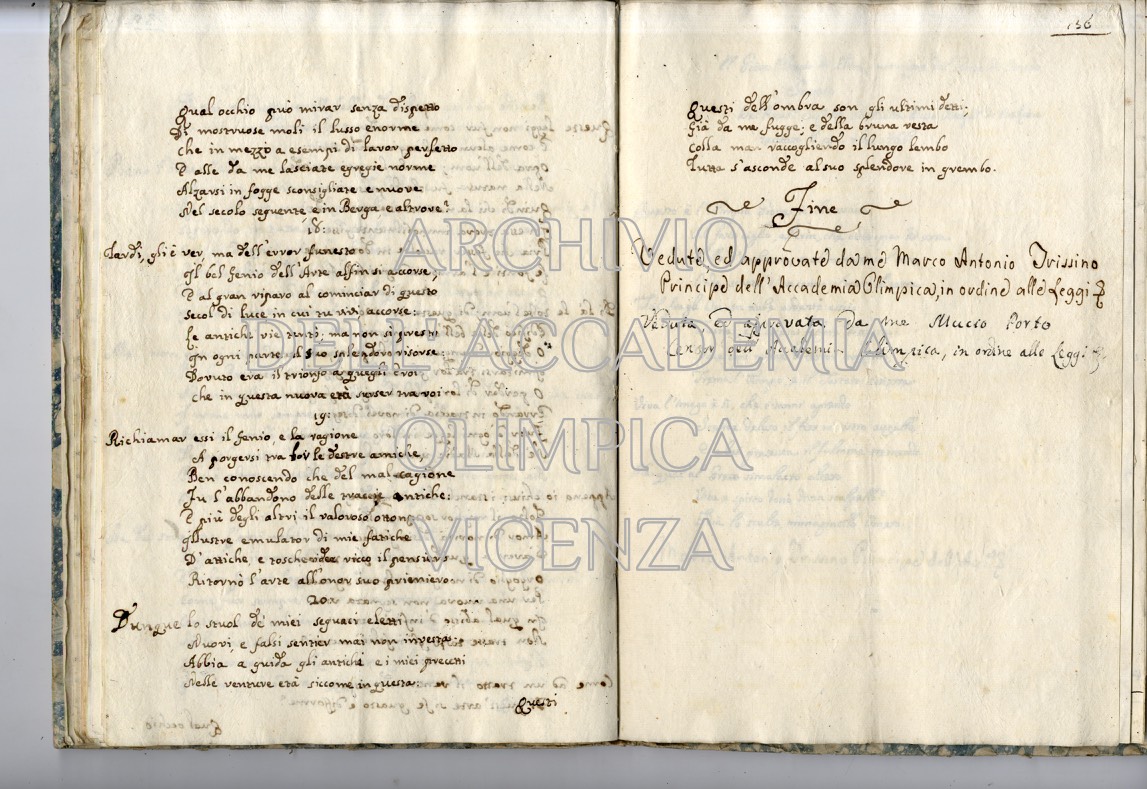 Qual occhio può mirar senza dispetto
Di mostruose moli il lusso enorme
Che in mezzo a esempi di lavor perfetto
E alle da me lasciate egregie norme
Alzarsi in fogge sconsigliate e nuove
Nel secolo seguente, e in Berga e altrove?
18:
Tardi, gli è ver, ma dell'error funesto
Il bel Genio dell'Arte alfin si accorse;
E al gran riparo al cominciar di questo
Secol di luce in cui tu vivi accorse:
Le antiche vie tentò: ma non sì presto
In ogni parte il suo splendore risorse;
Dovuto era il trionfo a quegli Eroi
Che in questa nuova età surser tra voi:
19:
Richiamar essi il Genio, e la ragione
A porgersi tra lor le destre amiche,
Ben conoscendo che del mal cagione
Fu l'abbandono delle traccie antiche:
E più degli altri il valoroso Ottone
Illustre emulator di mie fatiche
D'attiche, e tosche idee ricco il pensiero
Ritornò l'arte all'onor suo primiero.
20:
Dunque lo stuol de' miei seguaci eletti
Nuovi, e falsi sentier mai non investa:
Abbia a guida gli antichi e i miei precetti
Nelle venture età siccome in questa.
Questi
Qual occhio
136
Questi dell'ombra son gli ultimi detti;
Già da me fugge; e della bruna vesta
Colla man raccogliendo il lungo lembo
Tutta s'asconde al suo splendore in grembo.
Fine
Vedute, ed approvate da me Marco Antonio Trissino
Principe dell'Accademia Olimpica, in ordine alle Leggi
Veduta, ed approvata da me Muzio Porto
Censor dell'Accademia Olimpica, in ordine alle Leggi
ARCHIVIO
DELL'ACCADEMIA
OLIMPICA
VICENZA